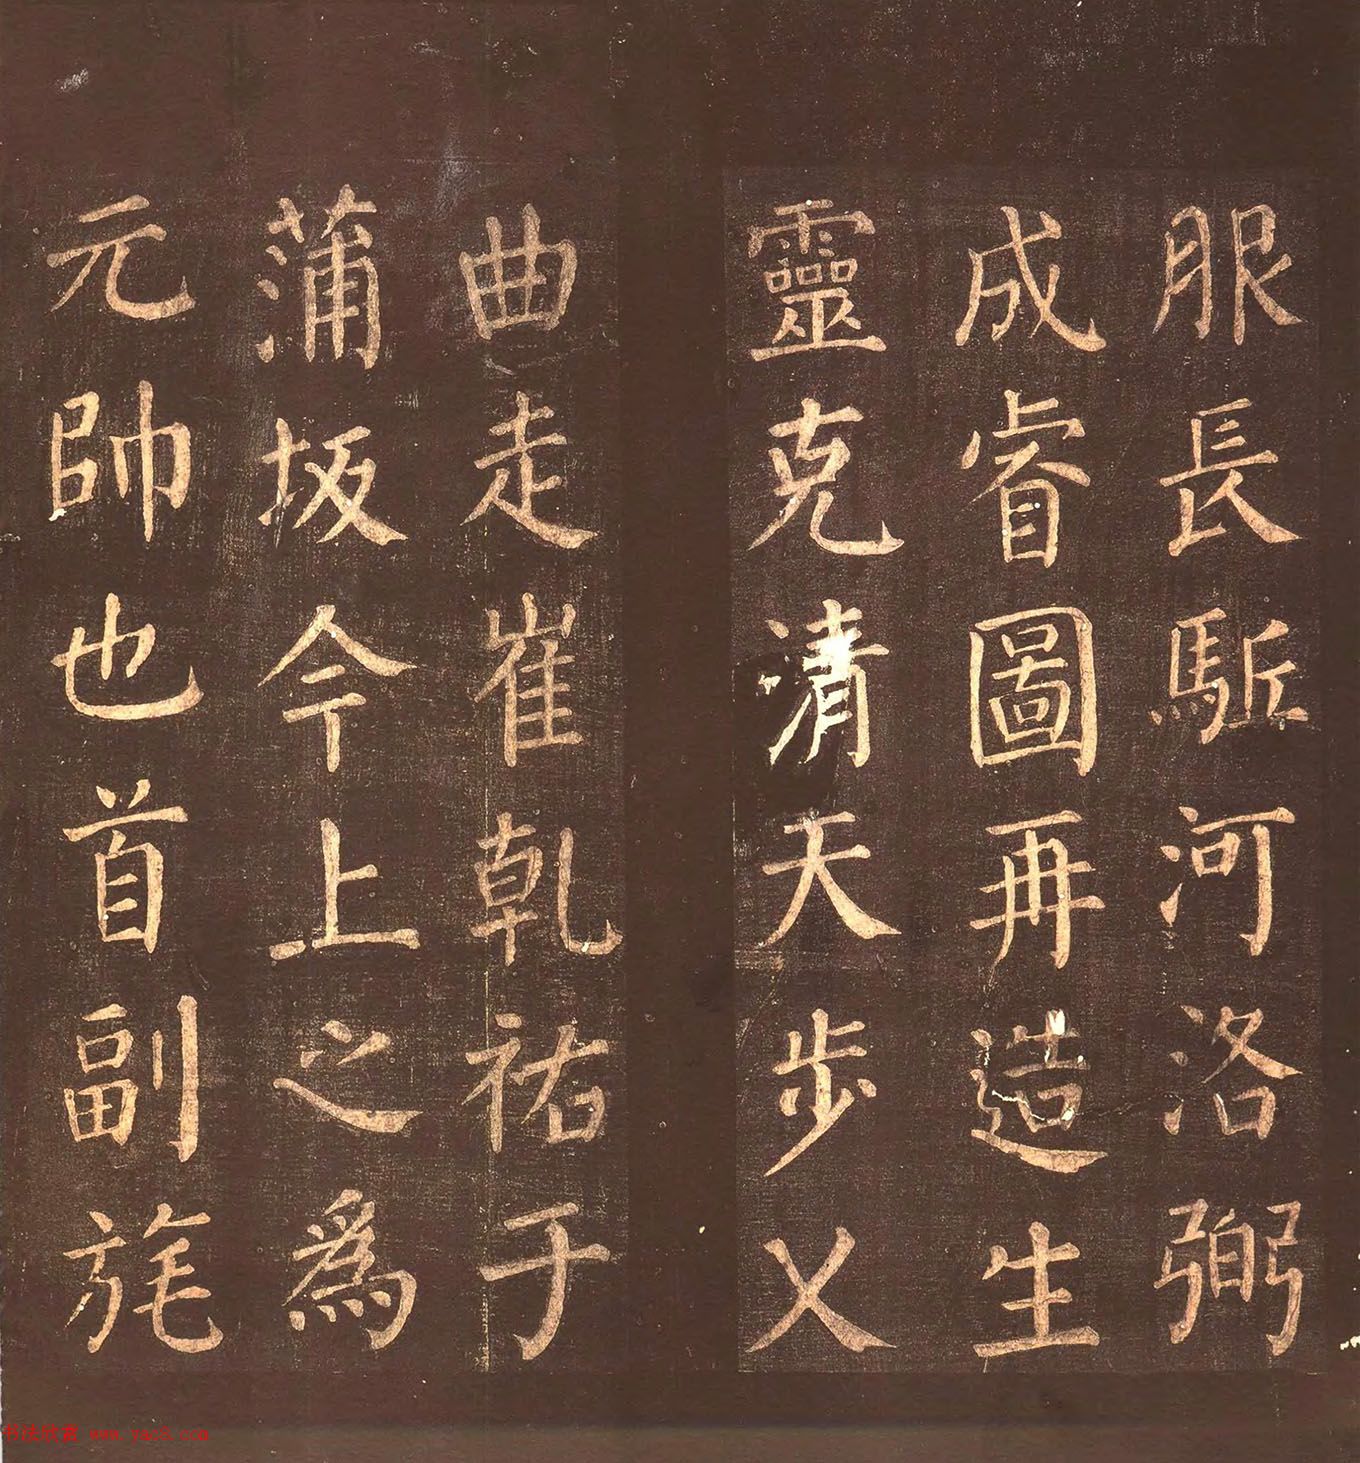 服長駈河洛弼
成睿圖再造生
靈克清天步乂
曲走崔乹祐于
蒲坂今上之爲
元帥也首副旄
书法欣赏 www.yac8.com